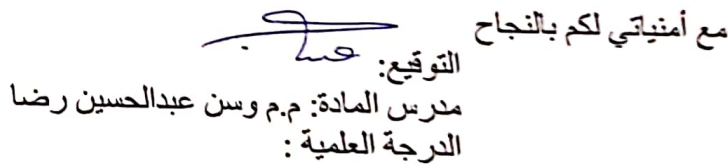 مع أمنياتي لكم بالنجاح
التوقيع:
مدرس المادة: م.م وسن عبدالحسين رضا
الدرجة العلمية :